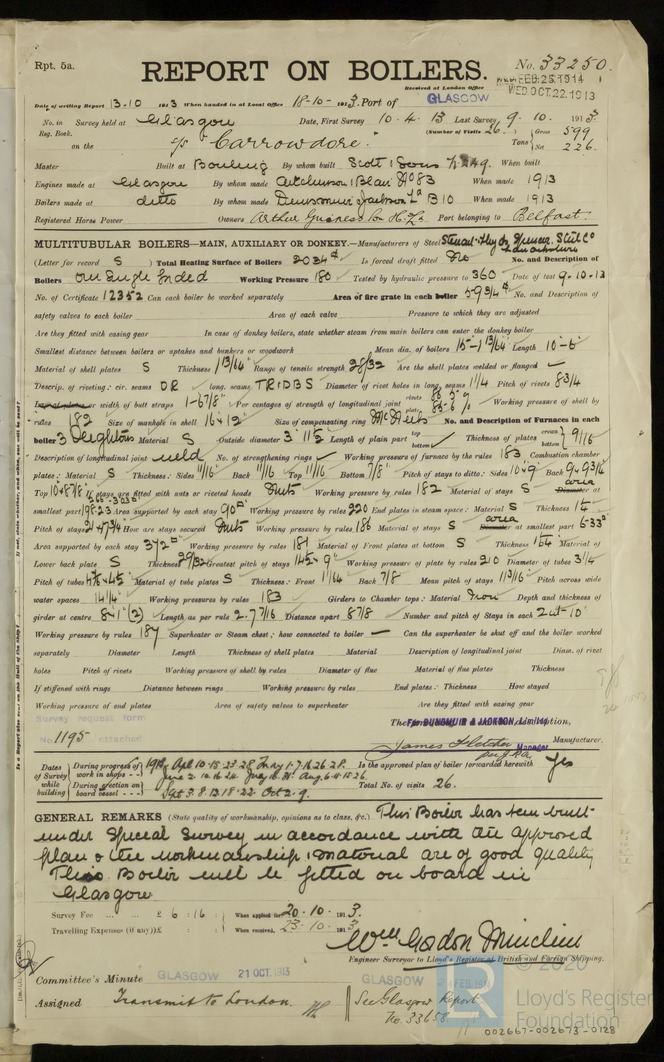 Rpt. 5a.
REPORT ON BOILERS.
No. 33250
Received at London Office
WED. FEB. 25. 1914
WED. OCT. 22. 1913
Date of writing Report 13.10 1913 When handed in at Local Office 18-10- 1913 Port of GLASGOW
No. in Survey held at Glasgow Date, First Survey 10.4.13 Last Survey 9.10.1913
Reg. Book. (Number of Visits 26.)
on the s/s "Carrowdore." Tons { Gross 599 Net 226.
Master Built at Bowling By whom built Scott & Sons When built
Engines made at Glasgow By whom made Aitchison Blair No 83 When made 1913
Boilers made at ditto By whom made Dunsmuir & Jackson Ld B10 When made 1913
Registered Horse Power Owners Arthur Guinness Son & Co Ld Port belonging to Belfast.
MULTITUBULAR BOILERS—MAIN, AUXILIARY OR DONKEY.—Manufacturers of Steel
(Letter for record S) Total Heating Surface of Boilers 2034 Is forced draft fitted No No. and Description of
Boilers One Single Ended Working Pressure 180 Tested by hydraulic pressure to 360 Date of test 9.10.13
No. of Certificate 12352 Can each boiler be worked separately Area of fire grate in each boiler 59 3/4 No. and Description of
safety valves to each boiler Area of each valve Pressure to which they are adjusted
Are they fitted with easing gear In case of donkey boilers, state whether steam from main boilers can enter the donkey boiler
Smallest distance between boilers or uptakes and bunkers or woodwork Mean dia. of boilers Length 10'-6"
Material of shell plates S Thickness 1 13/64" Range of tensile strength 28/32 Are the shell plates welded or flanged
Descrip. of riveting: cir. seams DR long. seams TRDBS Diameter of rivet holes in long. seams 1 1/4 Pitch of rivets 8 3/4
Lap of plates or width of butt straps 1-6 7/8" Per centages of strength of longitudinal joint rivets plate Working pressure of shell by
rules 182 Size of manhole in shell 16 x 12" Size of compensating ring McNeils No. and Description of Furnaces in each
boiler 3 Deightons Material S Outside diameter 3' 11 1/2 Length of plain part top bottom Thickness of plates crown bottom } 9/16
Description of longitudinal joint weld No. of strengthening rings Working pressure of furnace by the rules 183 Combustion chamber
plates: Material S Thickness: Sides 11/16" Back 11/16" Top 11/16 Bottom 7/8" Pitch of stays to ditto: Sides 10 x 9 Back 9 x 9 3/4
Top 10 x 8 7/8 If stays are fitted with nuts or riveted heads Nuts Working pressure by rules 182 Material of stays S Diameter area at
smallest part Area supported by each stay 90 Working pressure by rules 220 End plates in steam space: Material S Thickness
Pitch of stays How are stays secured Nuts Working pressure by rules 186 Material of stays S Diameter area at smallest part 6.33
Area supported by each stay 372 Working pressure by rules 181 Material of Front plates at bottom S Thickness Material of
Lower back plate S Thickness 29/32 Greatest pitch of stays Working pressure of plate by rules 210 Diameter of tubes 3 1/4
Pitch of tubes Material of tube plates S Thickness: Front Back 7/8 Mean pitch of stays Pitch across wide
water spaces 14 1/4" Working pressures by rules 183 Girders to Chamber tops: Material Iron Depth and thickness of
girder at centre 8 x 1" (2) Length as per rule 2-7 7/16 Distance apart 8 7/8 Number and pitch of Stays in each 2 at 10"
Working pressure by rules 187 Superheater or Steam chest; how connected to boiler — Can the superheater be shut off and the boiler worked
separately Diameter Length Thickness of shell plates Material Description of longitudinal joint Diam. of rivet
holes Pitch of rivets Working pressure of shell by rules Diameter of flue Material of flue plates Thickness
If stiffened with rings Distance between rings Working pressure by rules End plates: Thickness How stayed
Working pressure of end plates Area of safety valves to superheater Are they fitted with easing gear
Survey request form
No. 1195 attached
FOR DUNSMUIR & JACKSON, Limited
James Fletcher Manager Manufacturer.
Dates of Survey while building
During progress of work in shops - - 1913. Apl 10.15.23.28. May 1.7.16.26.28.
June 2.10.16.24. Aug 6.11.15.26.
During erection on board vessel - - - Sept 3.8.12.18.22. Oct 2.9.
Is the approved plan of boiler forwarded herewith Yes
Total No. of visits 26.
GENERAL REMARKS (State quality of workmanship, opinions as to class, &c.) This Boiler has been built
under Special Survey in accordance with the approved
plan & the workmanship & material are of good quality
This Boiler will be fitted on board in
Glasgow
Survey Fee ... ... £ 6 : 16 : When applied for 20.10.1913.
Travelling Expenses (if any) £ : : When received, 23.10.1913
Wm Gordon Minchin
Engineer Surveyor to Lloyd's Register of British and Foreign Shipping.
Committee's Minute GLASGOW 21 OCT. 1913 GLASGOW
Assigned Transmit to London. See Glasgow Report No. 33658
© 2020
LR
Lloyd's Register
Foundation
002667-002673-0128